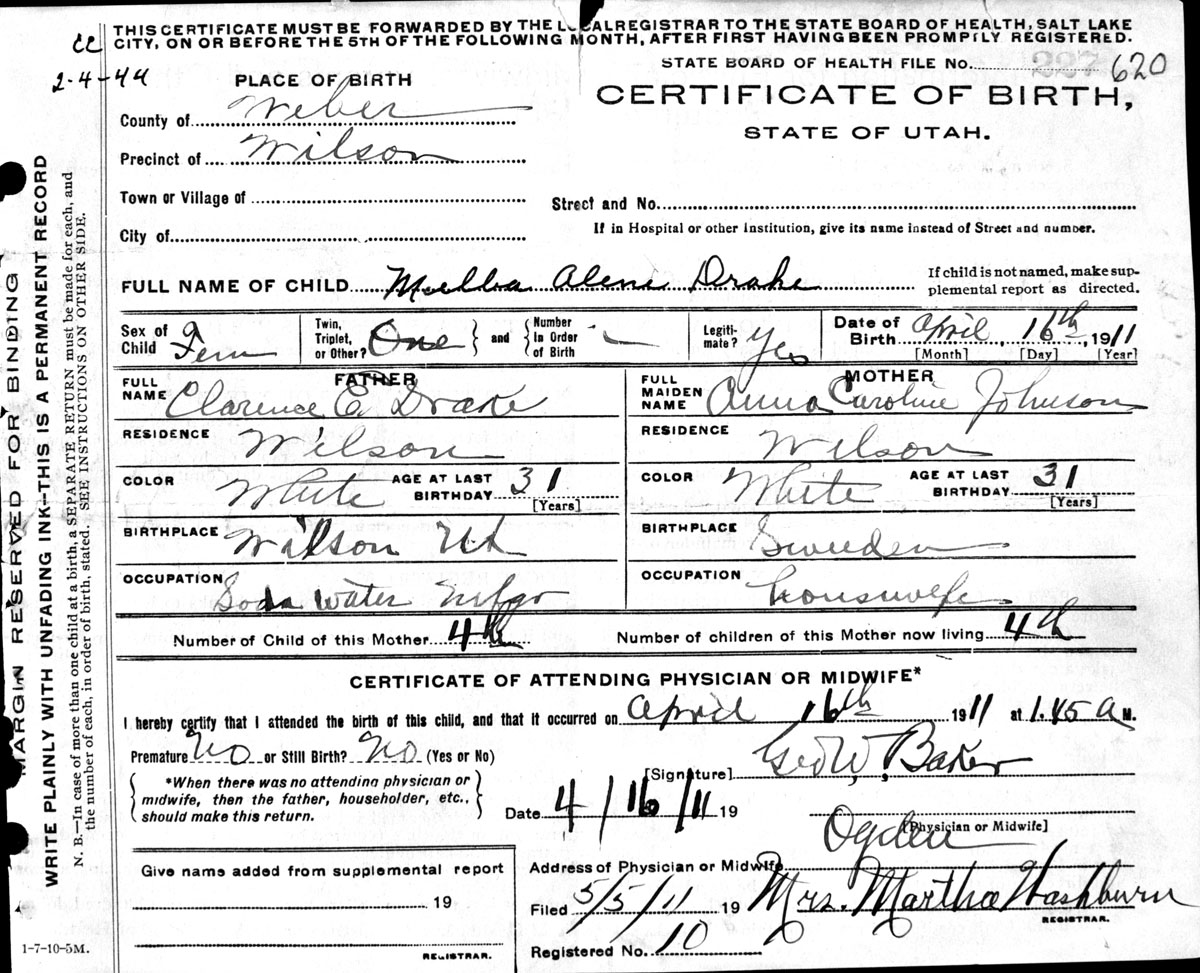 THIS CERTIFICATE MUST BE FORWARDED BY THE LOCAL REGISTRAR TO THE STATE BOARD OF HEALTH, SALT LAKE
CITY, ON OR BEFORE THE 5TH OF THE FOLLOWING MONTH, AFTER FIRST HAVING BEEN PROMPTLY REGISTERED.
2-4-44
STATE BOARD OF HEALTH FILE No. 227 620
PLACE OF BIRTH
CERTIFICATE OF BIRTH,
STATE OF UTAH.
County of Weber
Precinct of Wilson
Town or Village of
Street and No.
City of
If in Hospital or other Institution, give its name instead of Street and number.
FULL NAME OF CHILD Melba Alene Drake
If child is not named, make sup-
plemental report as directed.
Sex of Child Fem
Twin, Triplet, or Other? One and Number In Order of Birth
Legiti-mate? Yes
Date of Birth April 16th, 1911
[Month] [Day] [Year]
FATHER
FULL NAME Clarence E Drake
RESIDENCE Wilson
COLOR White AGE AT LAST BIRTHDAY 31 [Years]
BIRTHPLACE Wilson Ut
OCCUPATION Soda Water Mfgr
MOTHER
FULL MAIDEN NAME Anna Caroline Johnson
RESIDENCE Wilson
COLOR White AGE AT LAST BIRTHDAY 31 [Years]
BIRTHPLACE Sweeden
OCCUPATION housewife
Number of Child of this Mother 4th
Number of children of this Mother now living 4th
CERTIFICATE OF ATTENDING PHYSICIAN OR MIDWIFE*
I hereby certify that I attended the birth of this child, and that it occurred on April 16th 1911 at 1.45 A M.
Premature No or Still Birth? No (Yes or No)
*When there was no attending physician or
midwife, then the father, householder, etc.,
should make this return.
[Signature] Geo W, Baker
Date 4/16/11 19
[Physician or Midwife]
Address of Physician or Midwife Ogden
Give name added from supplemental report
19
REGISTRAR.
Filed 5/5/11 19 Mrs. Martha Washburn
REGISTRAR.
Registered No. 10
1-7-10-5M.
MARGIN RESERVED FOR BINDING
WRITE PLAINLY WITH UNFADING INK—THIS IS A PERMANENT RECORD
N. B.—In case of more than one child at a birth, a SEPARATE RETURN must be made for each, and
the number of each, in order of birth, stated. SEE INSTRUCTIONS ON OTHER SIDE.